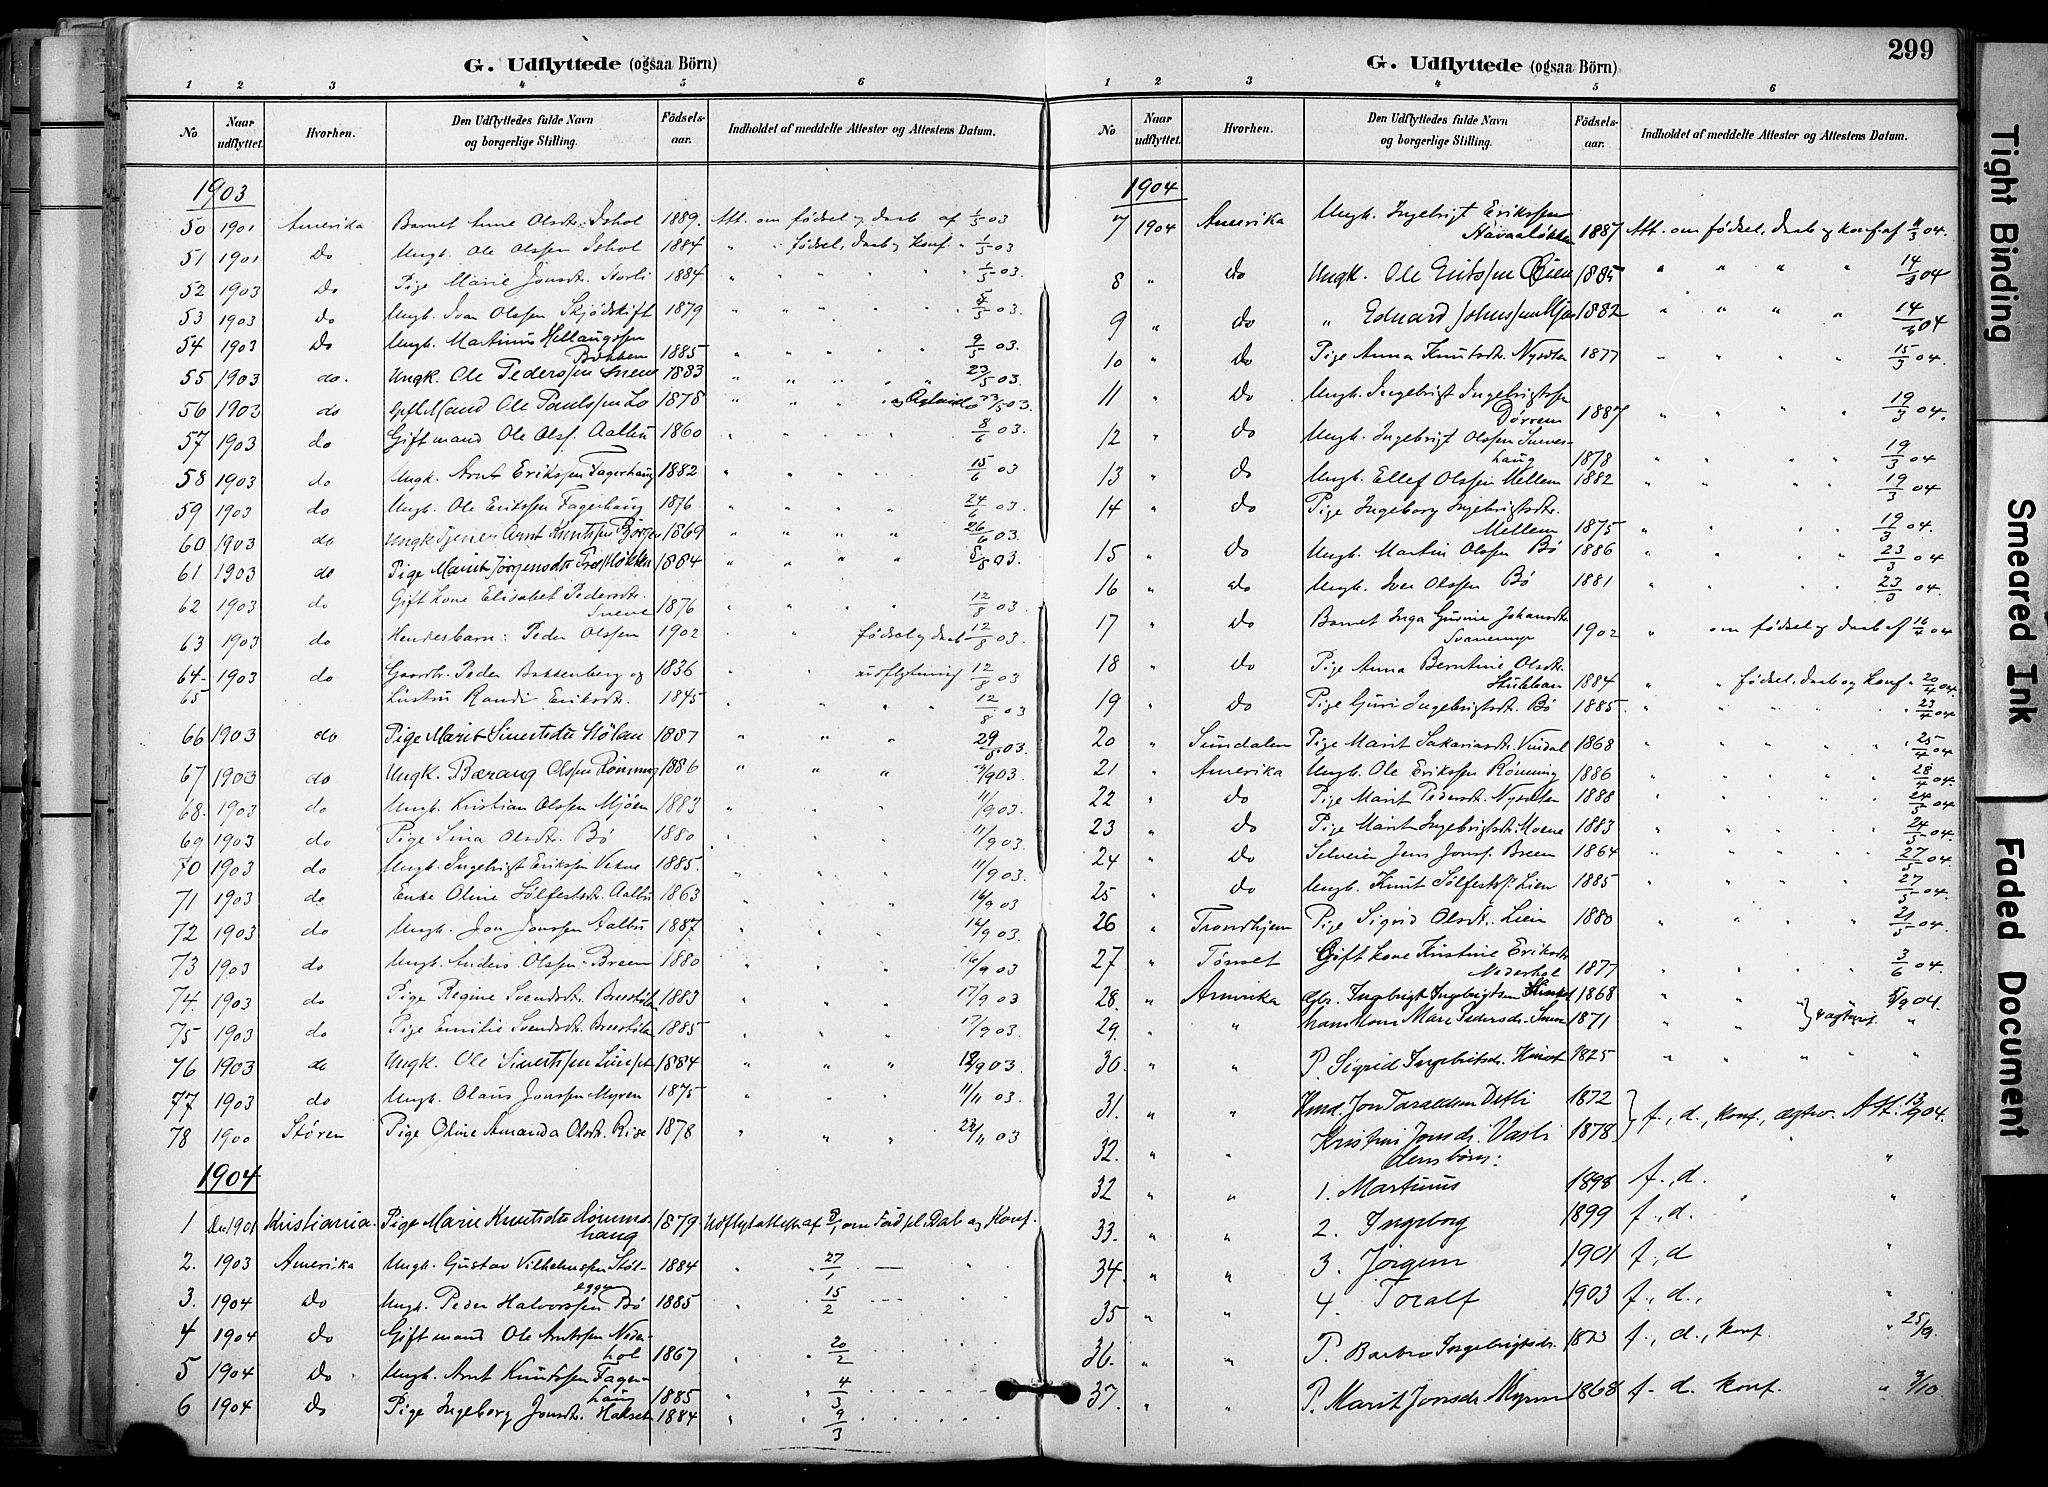 G. Udflyttede (ogsaa Börn)
1 2 3 4 5 6
No Naar udflyttet. Hvorhen. Den Udflyttedes fulde Navn og borgerlige Stilling. Födsels-aar. Indholdet af meddelte Attester og Attestens Datum.
1903
50 1901 Amerika Barnet Anne Olsdtr. Ishol 1889. Att. om fødsel og daab af 1/5 03
51 1901 Do Ungk. Ole Olssen Ishol 1884 " " fødsel, daab og konf. " 1/5 03
52 1903 Do Pige Marie Jonsdtr. Storli 1884 " " " " " 1/5 03.
53 1903 do Ungk. Ivar Olssen Skjødskift 1879 " " " " 5/5 03.
54 1903 Do Ungk. Martinus Hellaugssen
Bakken 1885 " " " " " 9/5 03.
55 1903 do. Ungk. Ole Pederssen Sneve 1883 " " " " " 23/5 03.
56 1903 do Gift Mand Ole Paulssen Lo 1878 " " " 23/5 03.
57 1903 do Gift mand Ole Olss. Aalbu 1860 " " " " 8/6 03.
58 1903 do Ungk. Arnt Erikssen Fagerhaug 1882 " " " " 15/6 03
59 1903 do Ungk. Ole Erikssen Fagerhaug 1876 " " " " 24/6 03.
60 1903 do Ungk Tjener Arnt Knutssen Bjørgen 1869 " " " " 26/6 03.
61 1903 do Pige Marit Jørgensdtr 1884 " " " " 5/8 03.
62 1903 do Gift kone Elisabet Pedersdtr.
Sneve 1876 " " " " 12/8 03.
63 1903 do Hendesbarn: Peder Olssen 1902 " " fødsel og daab 12/8 03.
64 1903 do Gaardbr. Peder Bakkenberg og 1836 " " udflytning 12/8 03
65 Hustru Randi Eriksdtr. 1845 " " " " 12/8 03
66 1903 do Pige Marit Sivertsdtr Stølan 1887 " " " 29/8 03.
67 1903 do Ungk. Bæraug Olssen Rønning 1886 " " " 3/9 03.
68. 1903 do Ungk. Kristian Olssen Mjøen 1883 " " 11/9 03.
69 1903 do Pige Sina Olsdtr. Bø 1880 " " 11/9 03.
70 1903 do Ungk. Ingebrigt Erikssen Vekve 1885. " " " 11/9 03.
71 1903 do Enke Oline Sølfestsdtr. Aalbu 1863 " " " 16/9 03
72 1903 do Ungk. Jon Jonssen Aalbu 1887 " " " 16/9 03.
73 1903 do Ungk. Anders Olssen Breen 1880 " " " 16/9 03
74. 1903 do Pige Regine Svendsdtr. 1883 " " " 17/9 03
75 1903 do Pige Emilie Svendsdtr. 1885. " " " 17/9 03.
76 1903 do Ungk. Ole Sivertssen 1884 " " " 18/9 03.
77 1903 do Ungk. Olaus Jonssen Myren 1875 " " " 11/11 03.
78 1900 Støren Pige Oline Amanda Olsdtr. Rise 1878 " " " 23/11 03
1904
1 Dec 1901 Kristiania. Pige Marie Knutsdtr Rønnings
haug 1879 Udflytattest af om Fødsel, Daab og Konf.
2. 1903 Amerika Ungk. Gustav Vilhelmssen Støl-
eggen 1884 " " 27/1 — "
3. 1904 Do Ungk. Peder Halvorssen Bø 1885 " " 15/2 — "
4 1904 Do Gift mand Ole Arntssen Neder-
hol 1867 " " 20/2 " "
5 1904 Do Ungk. Arnt Knutssen Fager-
haug 1885 " " 4/3
6 1904 Do Pige Ingeborg Jonsdtr. Hakset 1884 " " 9/3
299
G. Udflyttede (ogsaa Börn)
1 2 3 4 5 6
No Naar udflyttet. Hvorhen. Den Udflyttedes fulde Navn og borgerlige Stilling. Födsels-aar. Indholdet af meddelte Attester og Attestens Datum.
1904
7 1904 Amerika Ungk. Ingebrigt Erikssen
Haavaaløkken 1887 Att. om fødsel, daab og konf. af 11/3 04.
8 " Do Ungk. Ole Erikssen 1885 " " " " 14/3 04
9 " Do " Edvard Johnssen Mjøen 1882 " " " " 14/3 04
10 " Do Pige Anna Knutsdtr. 1877 " " " " 15/3 04.
11 " Do Ungk. Ingebrigt Ingebrigtssen
Dørrem 1887 " " " " 19/3 04.
12 " Do Ungk. Ingebrigt Olssen Sneve-
haug 1878 " " " " 19/3 04
13 " Do Ungk. Ellef Olssen Mellem 1882 " " " " 19/3 04
14 " do Pige Ingeborg Ingebrigtsdtr.
Mellem 1875 " " " " 19/3 04.
15 " Do Ungk. Martin Olssen Bø 1886 " " " " 23/3 04
16 " do Ungk. Iver Olssen Bø 1881 " " " " 23/3 04
17 " Do Barnet Inga Gurine Johansdtr.
1902 " om fødsel og daab af 16/4 04
18 " Do Pige Anna Berntine Olsdtr.
Stubban 1884 " " fødsel, daab og konf. " 20/4 04.
19 " Do Pige Guri Ingebrigtsdtr. Bø 1885. " " " " 23/4 04
20 " Sundalen Pige Marit Sakariasdtr. Vindal 1868 " " " " 25/4 04
21 " Amerika Ungk. Ole Erikssen Rønning 1886 " " " " 28/4 04.
22 " do Pige Marit Pedersdtr. 1888 " " " " 24/5 04
23 " Do Pige Marit Ingebrigtsdtr. Moene 1883 " " " " 24/5 04.
24 " Do Selveier Jens Jonss. Breen 1864 " " " " 27/5 04.
25 " Do Ungk. Knut Sølfestss. Lien 1885 " " " " 27/5 04.
26 " Trondhjem Pige Sigrid Olsdtr. Lien 1880 " " " " 21/5 04.
27 " Tønset Gift kone Kristine Eriksdtr
Nederhol 1877 " " " " 3/6 04.
28. " Amerika Gbr. Ingebrigt Ingebrigtsen 1868 " " " 5/9 04.
29. " " hans Kone Mare Pedersdr. 1871 " " "
30. " " P. Sigrid Ingebrigtsdr. 1825 " " " "
31. " " Kmd. Jon Taraldsen Detli 1872 f., d., konf., ægtev. Att. 13/9 04.
32. " " Kristine Jonsdr. Vasli 1878
deres børn:
32 " " 1. Martinus 1898 f., d. "
33. " " 2. Ingeborg 1899 f., d. " "
34. " " 3. Jørgine 1901 f., d "
35 " " 4. Toralf 1903 f., d., "
36. " " P. Barbro Ingebrigtsdr. 1873 f., d., konf. " 25/9.
37. " " P. Marit Jonsdr. Myren 1868 f. d. konf. " 3/10.
Tight Binding
Smeared Ink
Faded Document